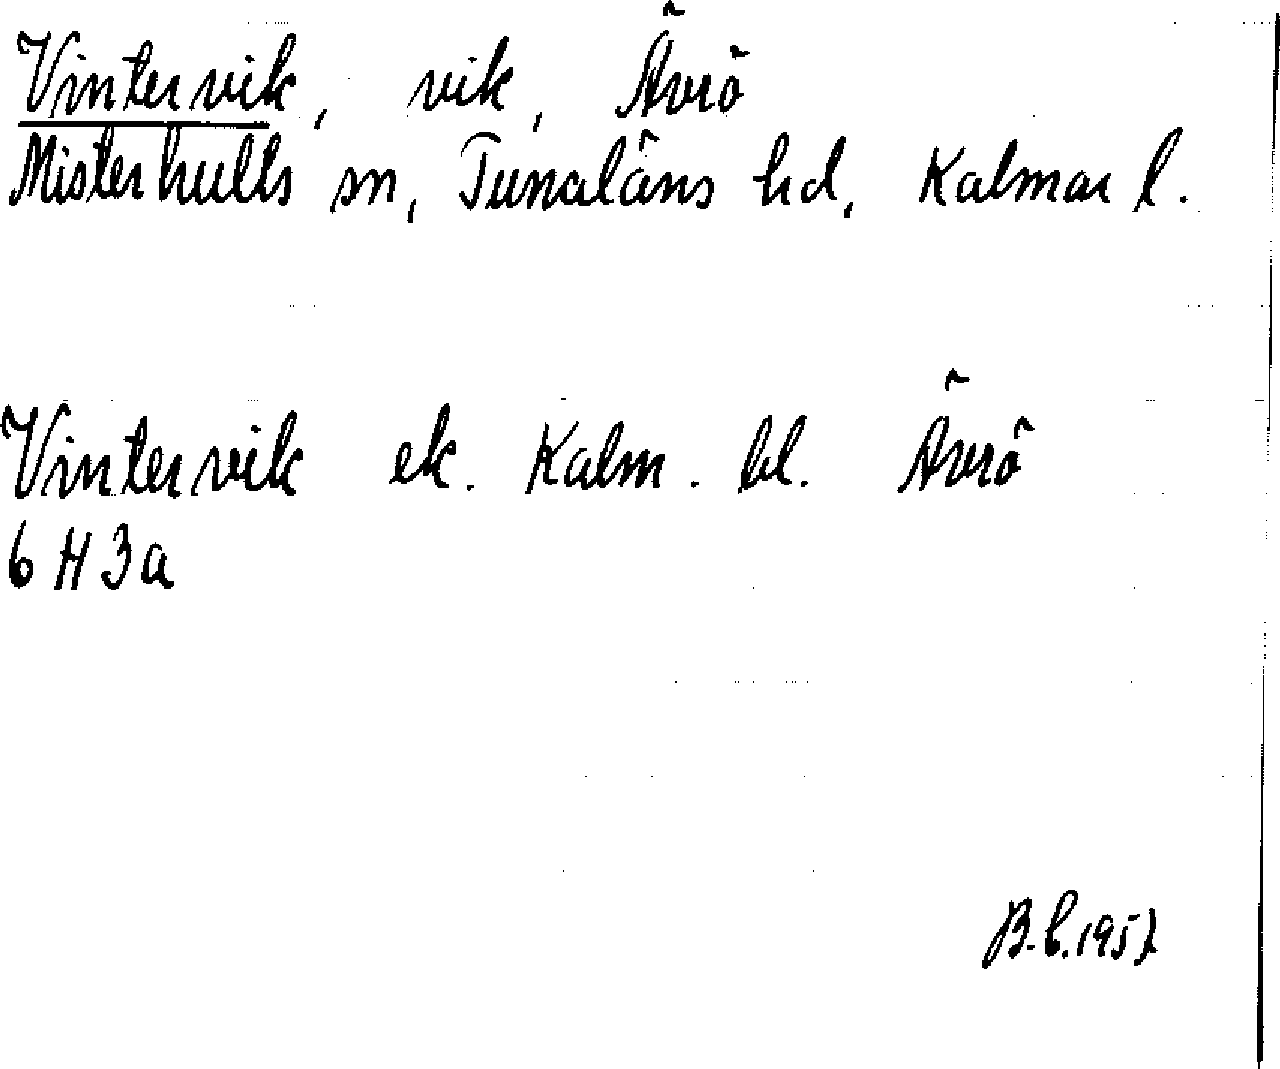 Vintervik, vik, Ävrö
Misterhults sn, Tunaläns hd, Kalmar l.
Vintervik ek. Kalm. bl. Ävrö
6 H 3a
B.C. 1952